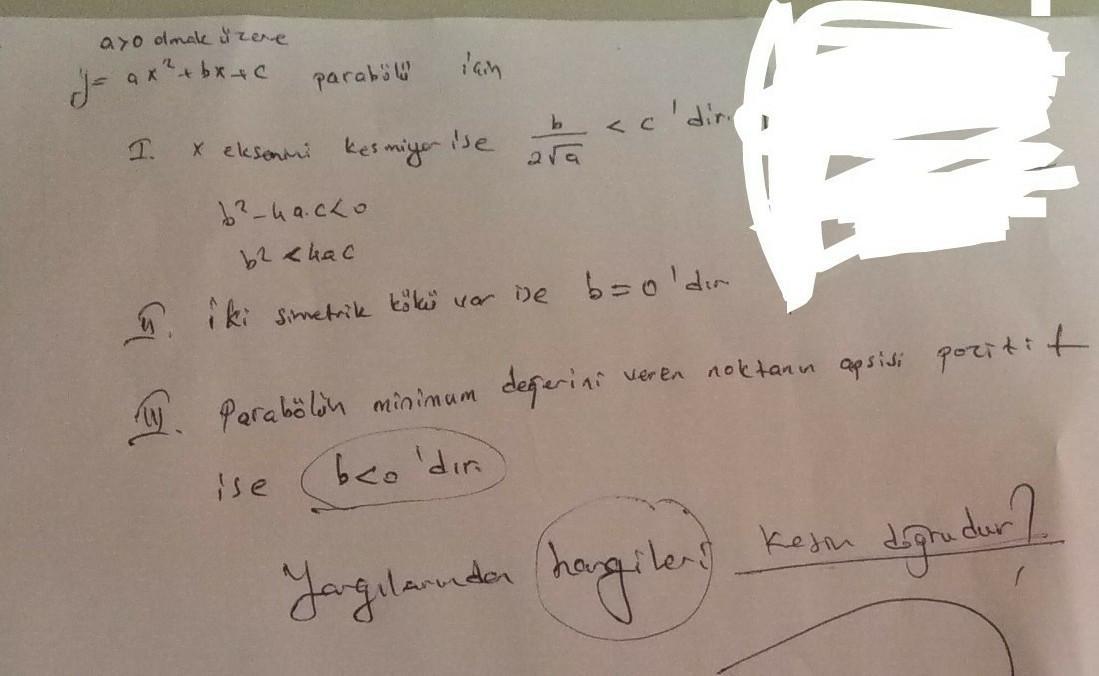 a>0 olmak üzere
y= ax²+bx+c parabölü için
I. x eksenini kesmiyor ise b/2√a < c 'dir.
b²-4a.c<0
b² <4ac
II. İki simetrik kökü var ise b=0 'dır
III. Parabölün minimum değerini veren noktanın apsisi pozitif
ise b<0 'dır.
Yargılarından hangileri kesin doğrudur?